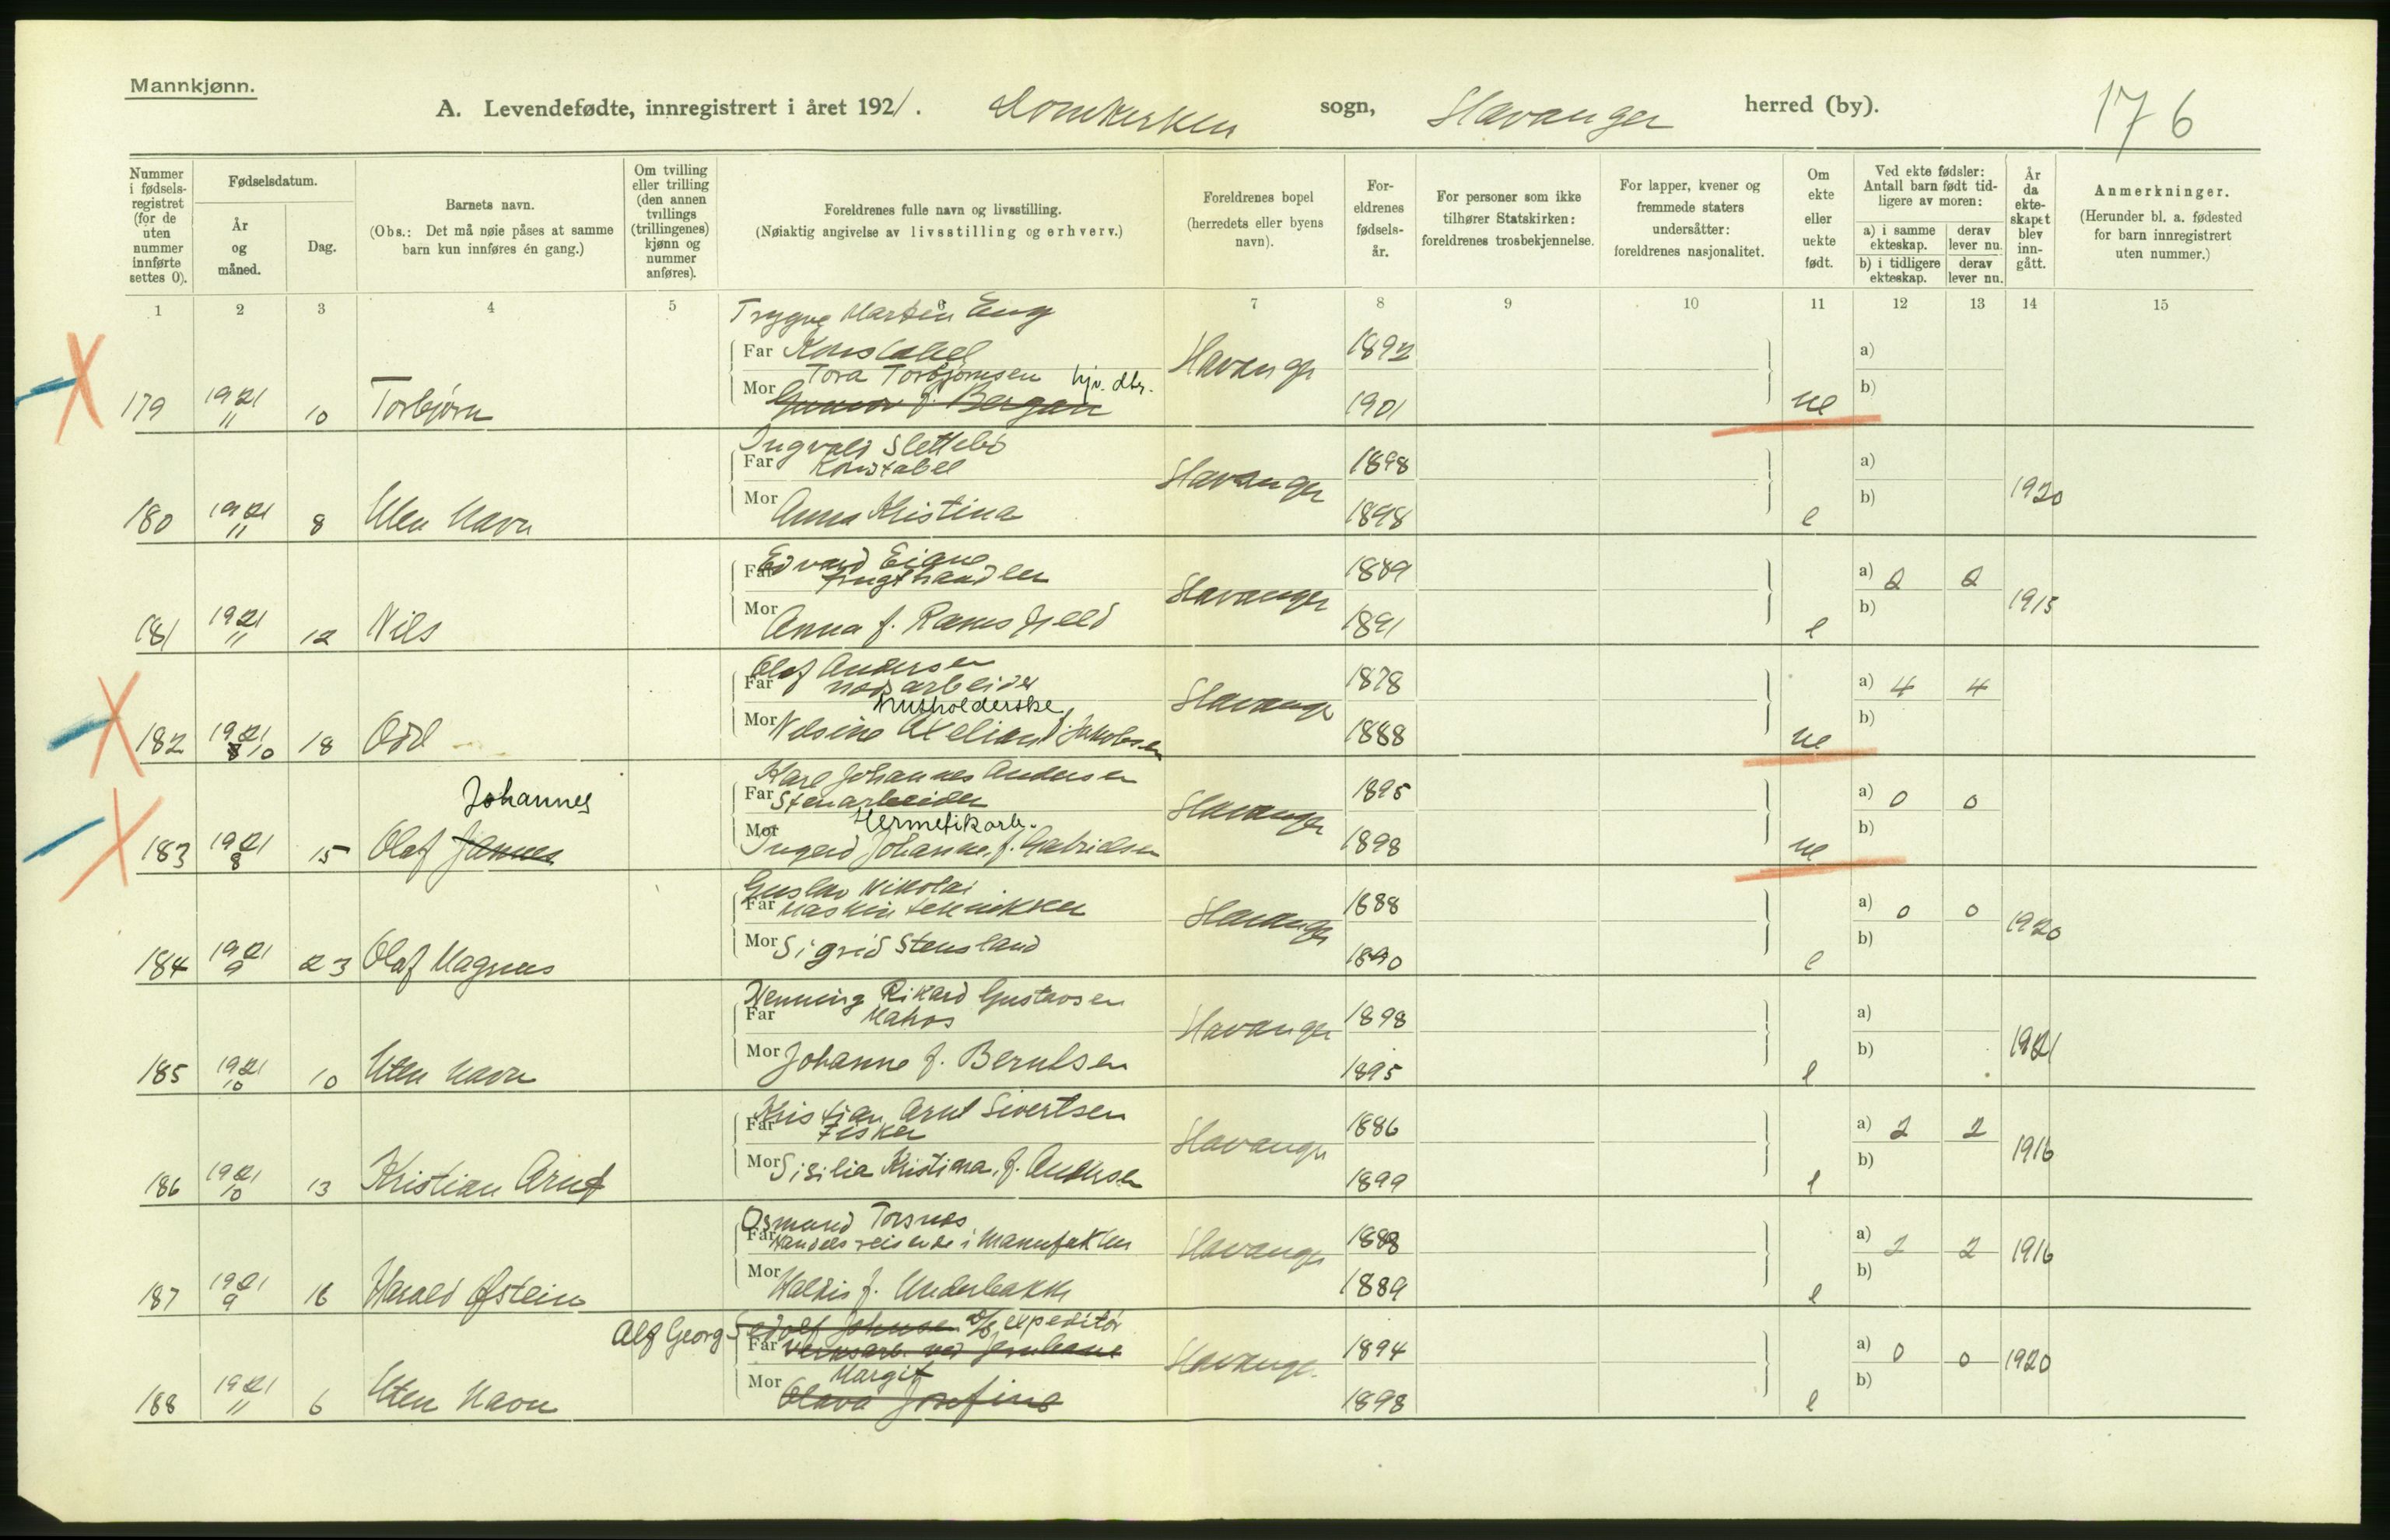 Mannkjønn.
A. Levendefødte, innregistrert i året 1921. Domkirken sogn, Stavanger herred (by). 176
Nummer i fødsels-registret (for de uten nummer innførte settes 0).
Fødselsdatum.
År og måned.
Dag.
Barnets navn.
(Obs.: Det må nøie påses at samme barn kun innføres én gang.)
Om tvilling eller trilling (den annen tvillings (trillingenes) kjønn og nummer anføres).
Foreldrenes fulle navn og livsstilling.
(Nøiaktig angivelse av livsstilling og erhverv.)
Foreldrenes bopel (herredets eller byens navn).
For-eldrenes fødsels-år.
For personer som ikke tilhører Statskirken: foreldrenes trosbekjennelse.
For lapper, kvener og fremmede staters undersåtter: foreldrenes nasjonalitet.
Om ekte eller uekte født.
Ved ekte fødsler: Antall barn født tid-ligere av moren:
a) i samme ekteskap.
derav lever nu.
b) i tidligere ekteskap.
derav lever nu.
År da ekte-skapet blev inn-gått.
Anmerkninger.
(Herunder bl. a. fødested for barn innregistrert uten nummer.)
1 2 3 4 5 6 7 8 9 10 11 12 13 14 15
Trygve Martin Eng
Far Konstabel Stavanger 1892 a)
Tora Torbjørnsen hjv. dtr.
179 1921 11 10 Torbjørn Mor Gunvor f. Bergan 1901 ue b)
Ingvald Slettebø
Far Konstabel Stavanger 1898 a) 1920
180 1921 11 8 Uten Navn Mor Anna Kristina 1898 e b)
Edvard Eigne
Far frugthandler Stavanger 1889 a) 2 2 1915
181 1921 11 12 Nils Mor Anna f. Ramsfjeld 1891 e b)
Olaf Andersen
Far arbeider Stavanger 1878 a) 4 4
husholderske
182 1921 10 18 Odd Mor Nelsine f. Jakobsen 1888 ue b)
Karl Johannes Andersen
Johannes Far Stenarbeider Stavanger 1895 a) 0 0
Hermetikarb.
183 1921 8 15 Olaf Mor Ingerd Johanne f. Gabrielsen 1898 ue b)
Gustav Nikolai
Far Maskintekniker Stavanger 1888 a) 0 0 1920
184 1921 9 23 Olaf Magnus Mor Sigrid Stensland 1890 e b)
Henning Rikard Gustavsen
Far Matros Stavanger 1898 a) 1921
185 1921 10 10 Uten navn Mor Johanne f. Berntsen 1895 e b)
Kristian Arnt Sivertsen
Far Fisker Stavanger 1886 a) 2 2 1916
186 1921 10 13 Kristian Arnt Mor Sisilia Kristiana, f. Andersen 1899 e b)
Osmund Torsnes
Far Handelsreisende i Manufaktur Stavanger 1888 a) 2 2 1916
187 1921 9 16 Harald Østein Mor Haldis f. Underbakke 1889 e b)
Alf Georg Johnsen expeditør
Far Verksarb. ved Jernbane Stavanger 1894 a) 0 0 1920
Margit
188 1921 11 6 Uten Navn Mor Olava Josefine 1898 e b)